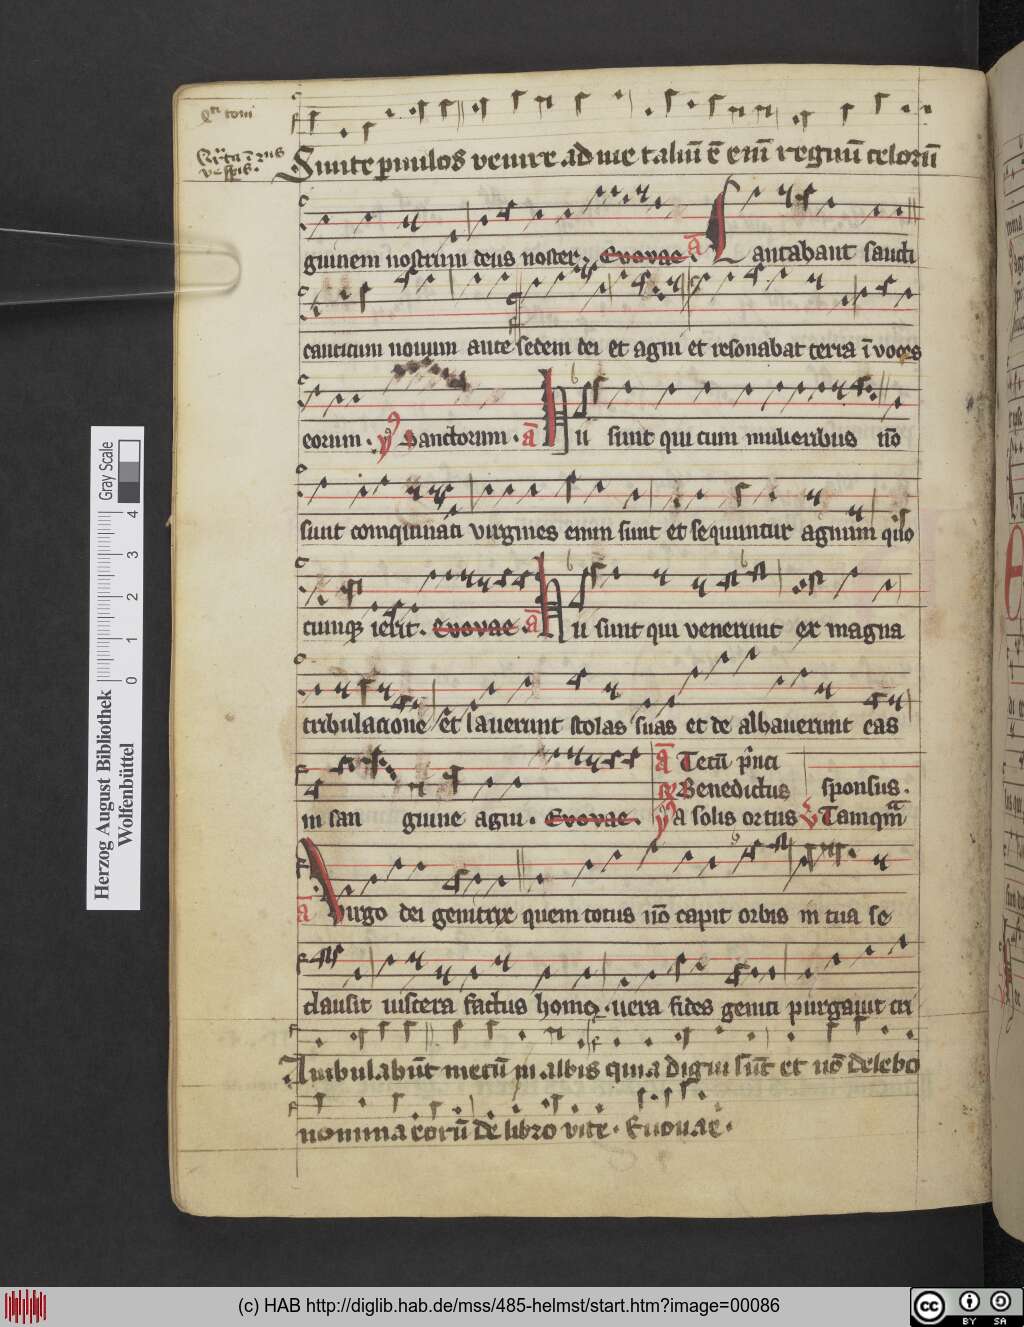 Sinite paruulos venire ad me taliū ē eniī regnū celorū
guinem nostrum deus noster. Euouae. a Cantabant sancti
canticum nouum ante sedem dei et agni et resonabat terra ī voces
eorum. Sanctorum. a Hii sunt qui cum mulieribus nō
sunt coinquinati virgines enim sunt et sequuntur agnum quo
cumqꝫ ierit. Euouae. a Hii sunt qui venerunt ex magna
tribulacione et lauerunt stolas suas et de albauerunt eas
a Tecū p̄nci
Benedictus sponsus.
in san guine agni. Euouae. A solis ortus Tamqm̄
a Virgo dei genitrix quem totus nō capit orbis in tua se
clausit uiscera factus homo. uera fides geniti purgauit cri
Ambulabūt mecū in albis quia digni sūt et nō delebo
nomina eorū de libro vite. Euouae.
Gray Scale
0 1 2 3 4
Herzog August Bibliothek
Wolfenbüttel
(c) HAB http://diglib.hab.de/mss/485-helmst/start.htm?image=00086
cc BY SA